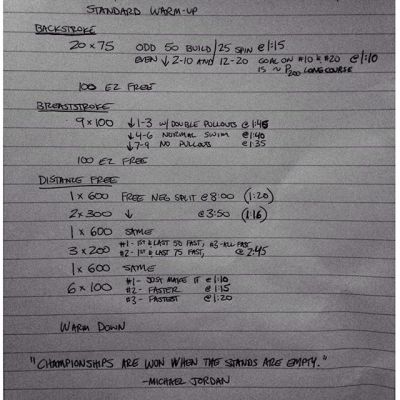 STANDARD WARM-UP
BACKSTROKE
20 x 75 ODD 50 BUILD/25 SPIN @ 1:15
EVEN ↓ 2-10 AND 12-20 GOAL ON #10 & #20 @ 1:10
IS ~ P200 LONG COURSE
100 EZ FREE
BREASTSTROKE
9 x 100 ↓1-3 W/ DOUBLE PULLOUTS @ 1:45
↓4-6 NORMAL SWIM @ 1:40
↓7-9 NO PULLOUTS @ 1:35
100 EZ FREE
DISTANCE FREE
1 x 600 FREE NEG SPLIT @ 8:00 (1:20)
2 x 300 ↓ @ 3:50 (1:16)
1 x 600 SAME
3 x 200 #1- 1ST & LAST 50 FAST, #3- ALL FAST
#2- 1ST & LAST 75 FAST, @ 2:45
1 x 600 SAME
6 x 100 #1- JUST MAKE IT @ 1:10
#2- FASTER @ 1:15
#3- FASTEST @ 1:20
WARM DOWN
"CHAMPIONSHIPS ARE WON WHEN THE STANDS ARE EMPTY."
-MICHAEL JORDAN